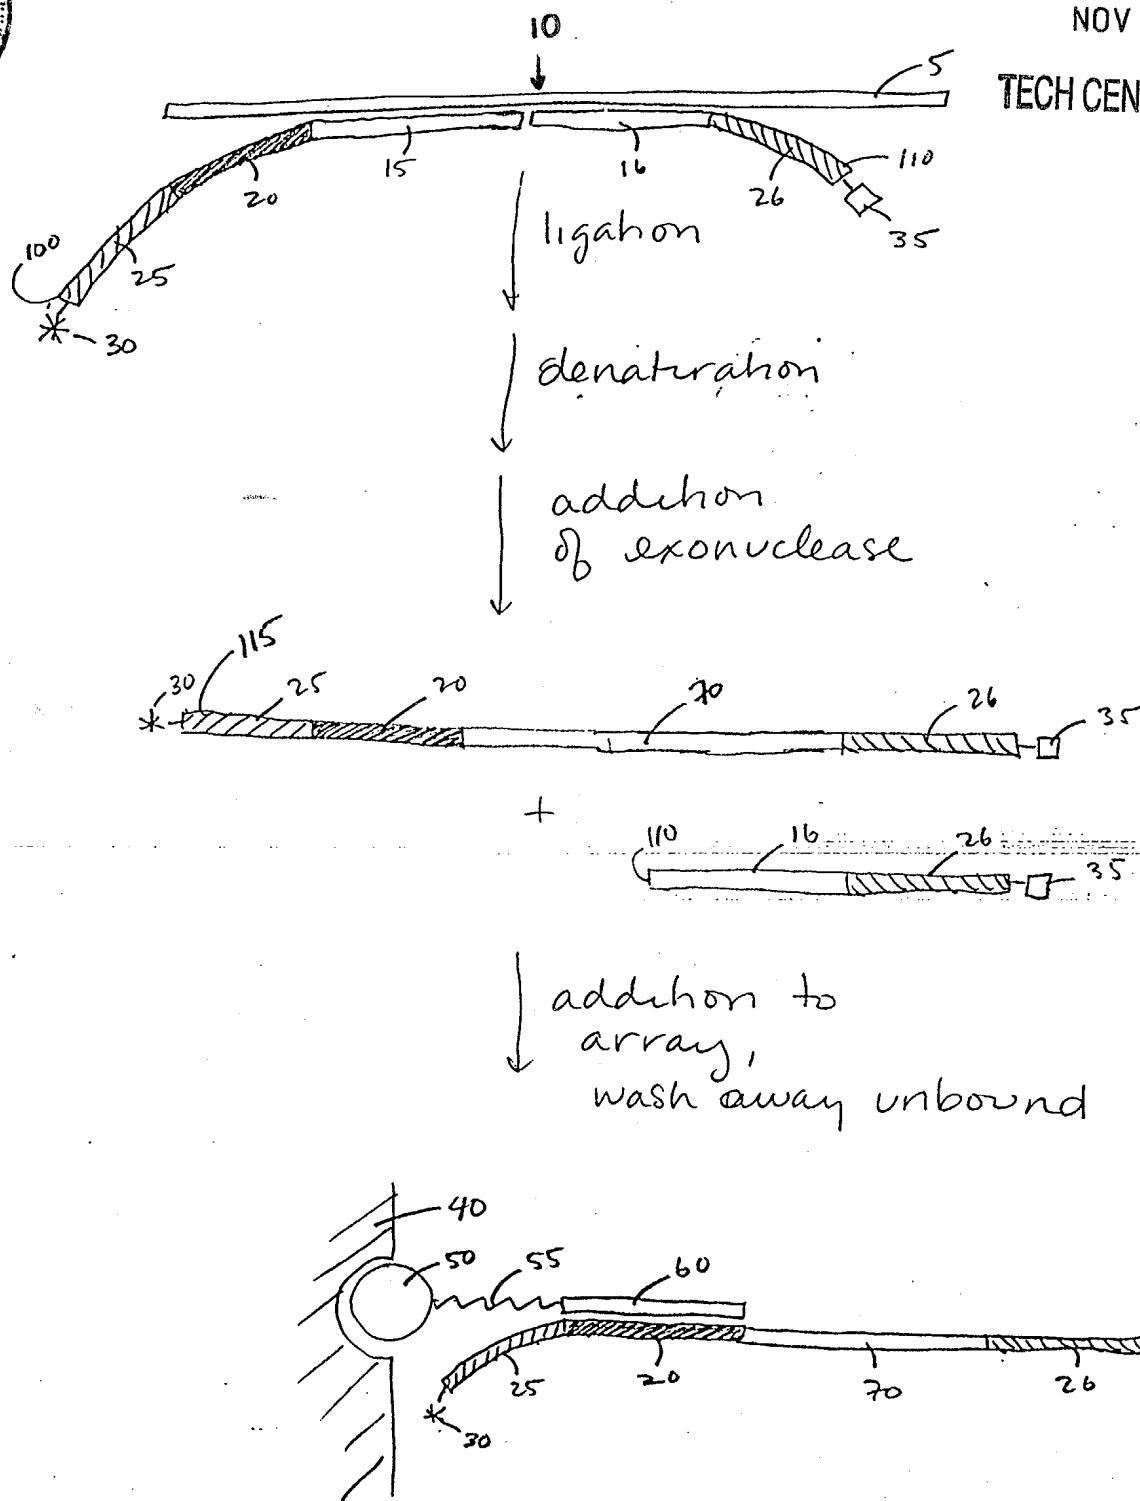 NOV
10
5
TECH CEN
15
16
110
20
26
35
100
25
30
ligation
denaturation
addition
of exonuclease
115
30
25
20
70
26
35
+
110
16
26
35
addition to
array,
wash away unbound
40
50
55
60
25
20
70
26
30